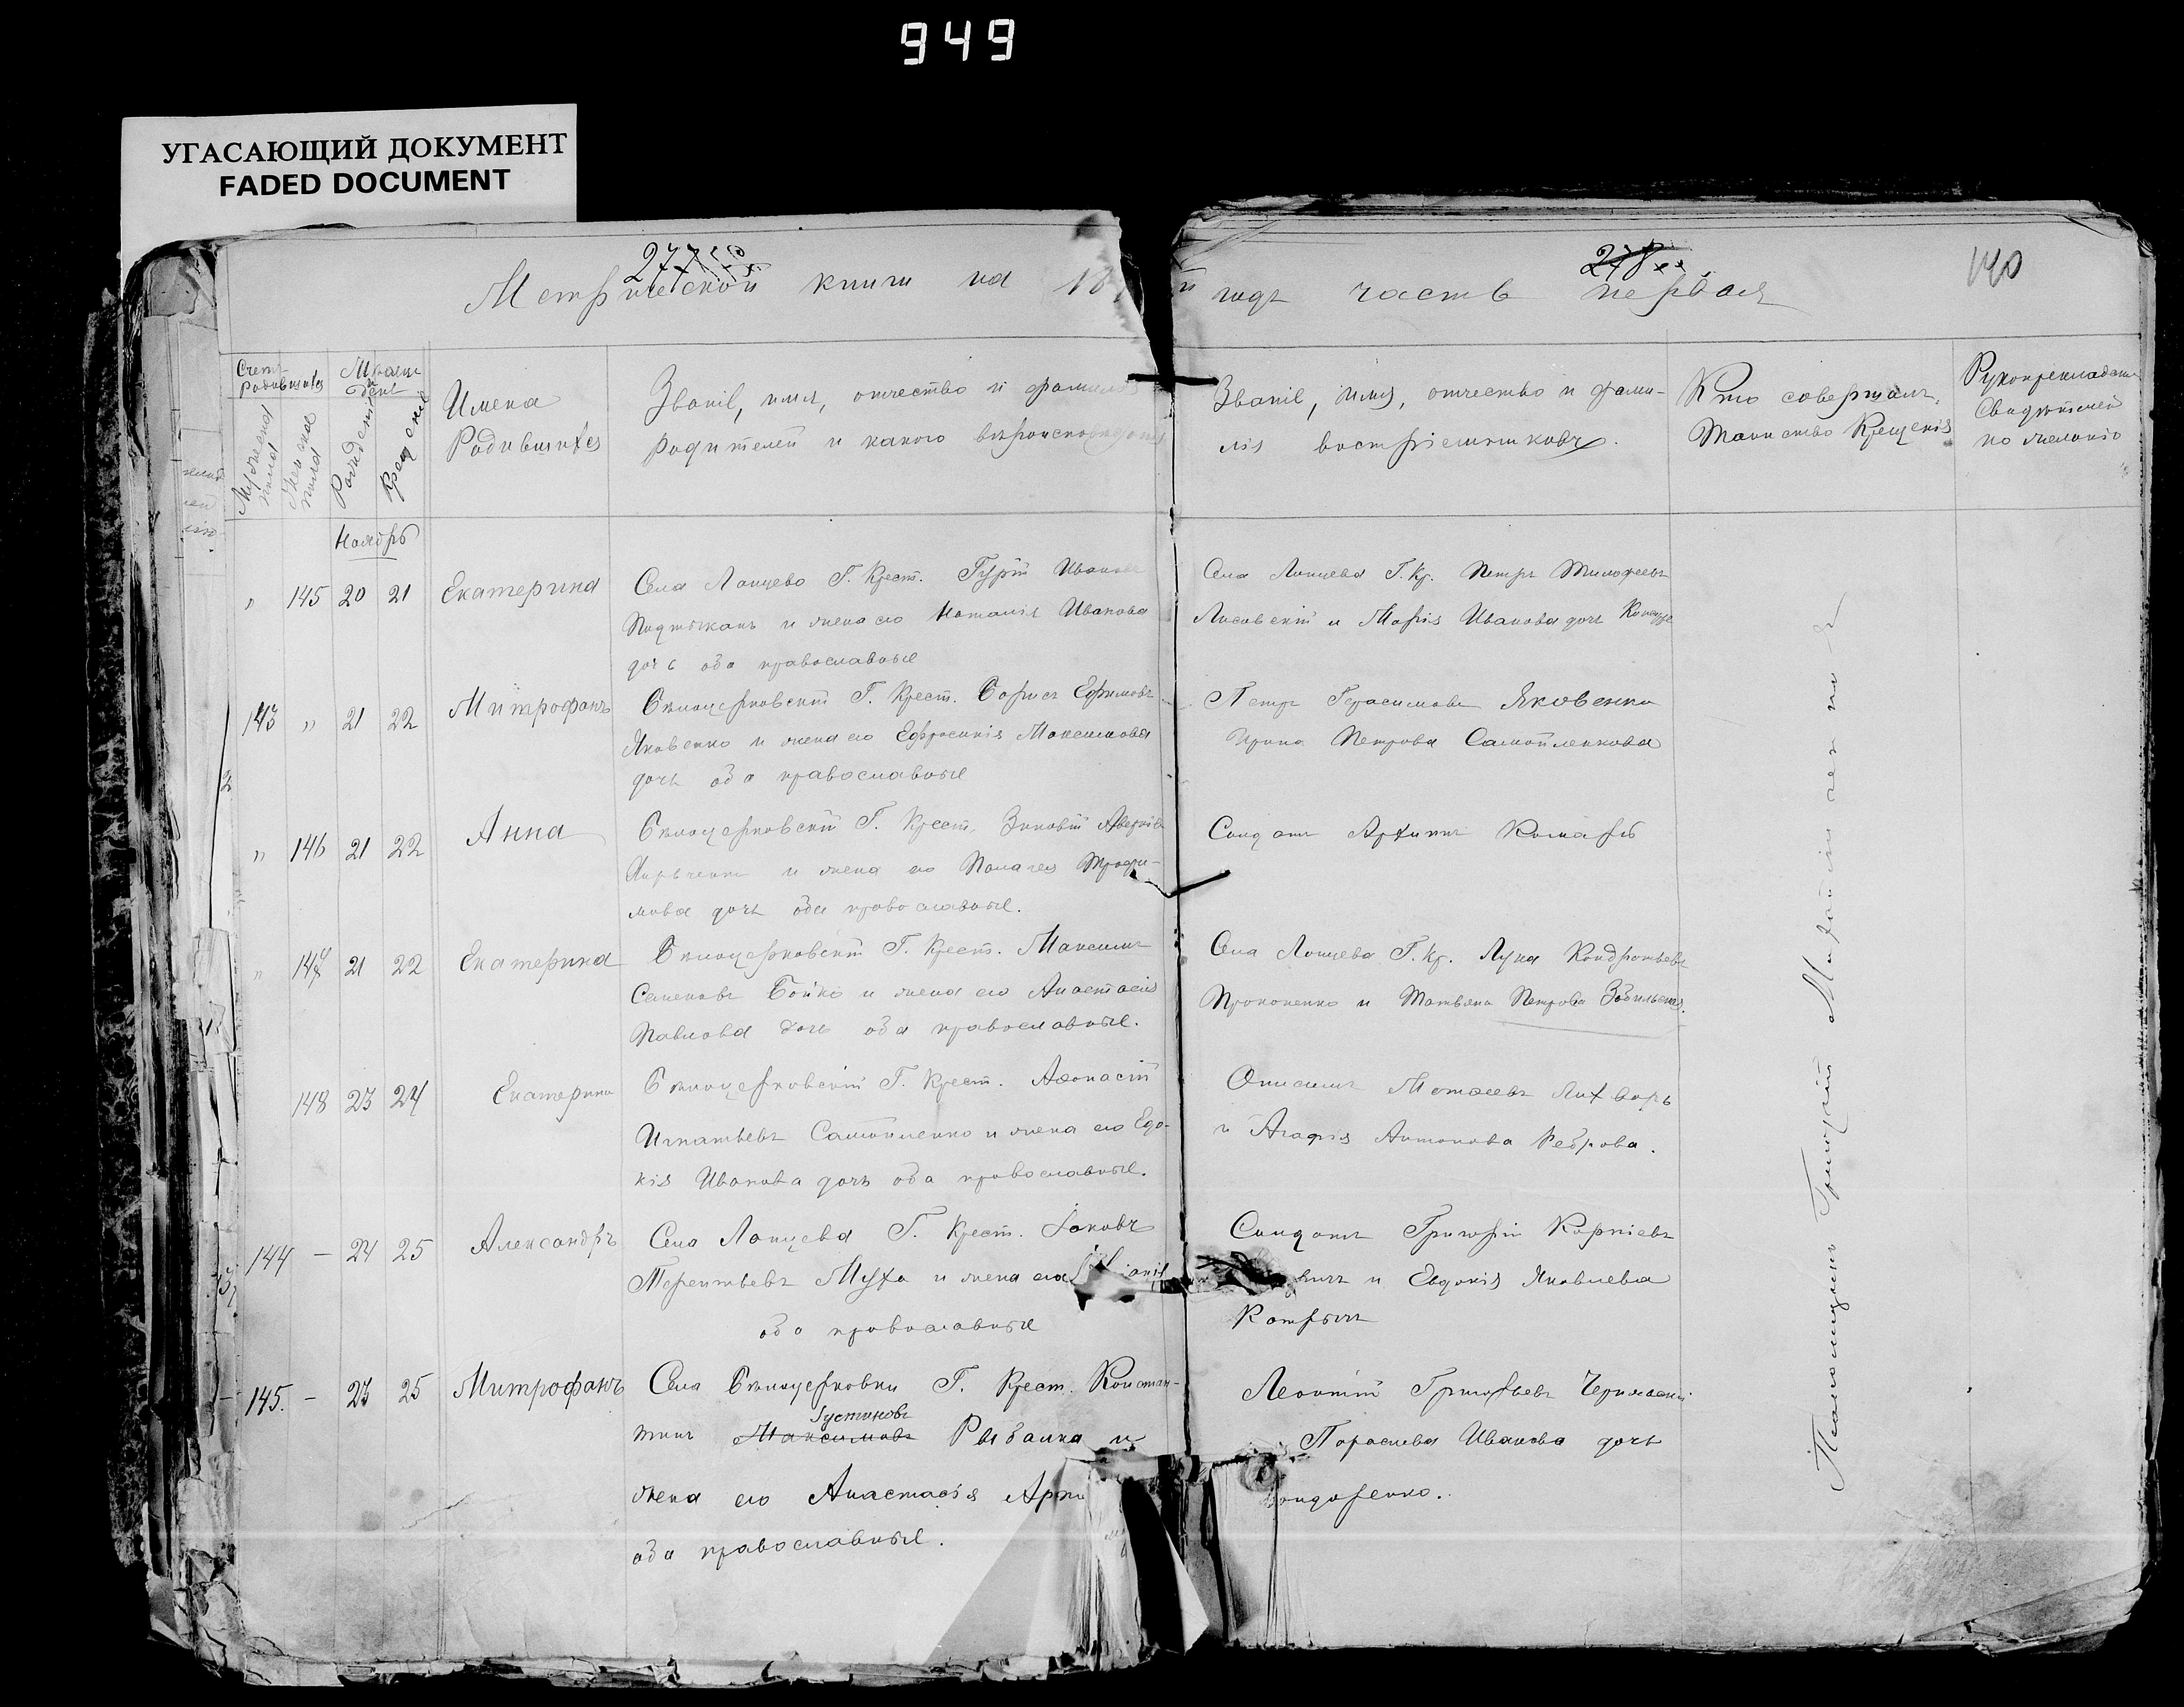 949
УГАСАЮЩИЙ ДОКУМЕНТ
FADED DOCUMENT
277
278
140
Метрической книги на 18
й годъ часть первая
Счетъ родившихся
Мужеска пола
Женска пола
Рожденія
Крещенія
Имена
Родившихся
Званіе, имя, отчество и фамилія
родителей и какого вѣроисповѣданія
Званіе, имя, отчество и фами-
лія воспріемниковъ.
Кто совершалъ
Таинство Крещенія
Рукоприкладство
Свидѣтелей
по желанію
Ноябрь
" 145 20 21 Екатерина
Села Лопцево Г. Крест. Гурій Ивановъ
и жена его Наталія Иванова
дочь оба православные
Села Лопцева Г. Кр. Петръ Тимофеевъ
Лисовскій и Марія Иванова дочь
143 " 21 22 Митрофанъ
Бѣлоцерковскій Г. Крест. Борисъ Ефимовъ
Яковенко и жена его Ефросинія Максимова
дочь оба православные
Петръ Герасимовъ Яковенко
Ирина Петрова Самойленкова
" 146 21 22 Анна
Бѣлоцерковскій Г. Крест. Зиновій
и жена его Пелагея Трофи-
мова дочь оба православные.
Солдатъ Архипъ Комаръ
" 147 21 22 Екатерина
Бѣлоцерковскій Г. Крест. Максимъ
Семеновъ Бойко и жена его Анастасія
Павлова дочь оба православные.
Села Лопцева Г. Кр. Лука Кондратьевъ
Прокопенко и Татьяна Петрова
148 23 24 Екатерина
Бѣлоцерковскій Г. Крест. Афанасій
Игнатьевъ Самойленко и жена его Евдо-
кія Иванова дочь оба православные.
Онисимъ Матвеевъ Лихваръ
и Агафія Антонова Реброва.
144 — 24 25 Александръ
Села Лопцева Г. Крест. Іаковъ
Терентьевъ Муха и жена его
оба православные
Солдатъ Григорій Корніевъ
и Евдокія Яковлева
145. — 23 25 Митрофанъ
Села Бѣлоцерковки Г. Крест. Констан-
Іустиновъ
тинъ Максимовъ Рыбалка и
жена его Анастасія
оба православные.
Леонтій Григорьевъ
Параскева Иванова дочь
Помощникъ Григорій